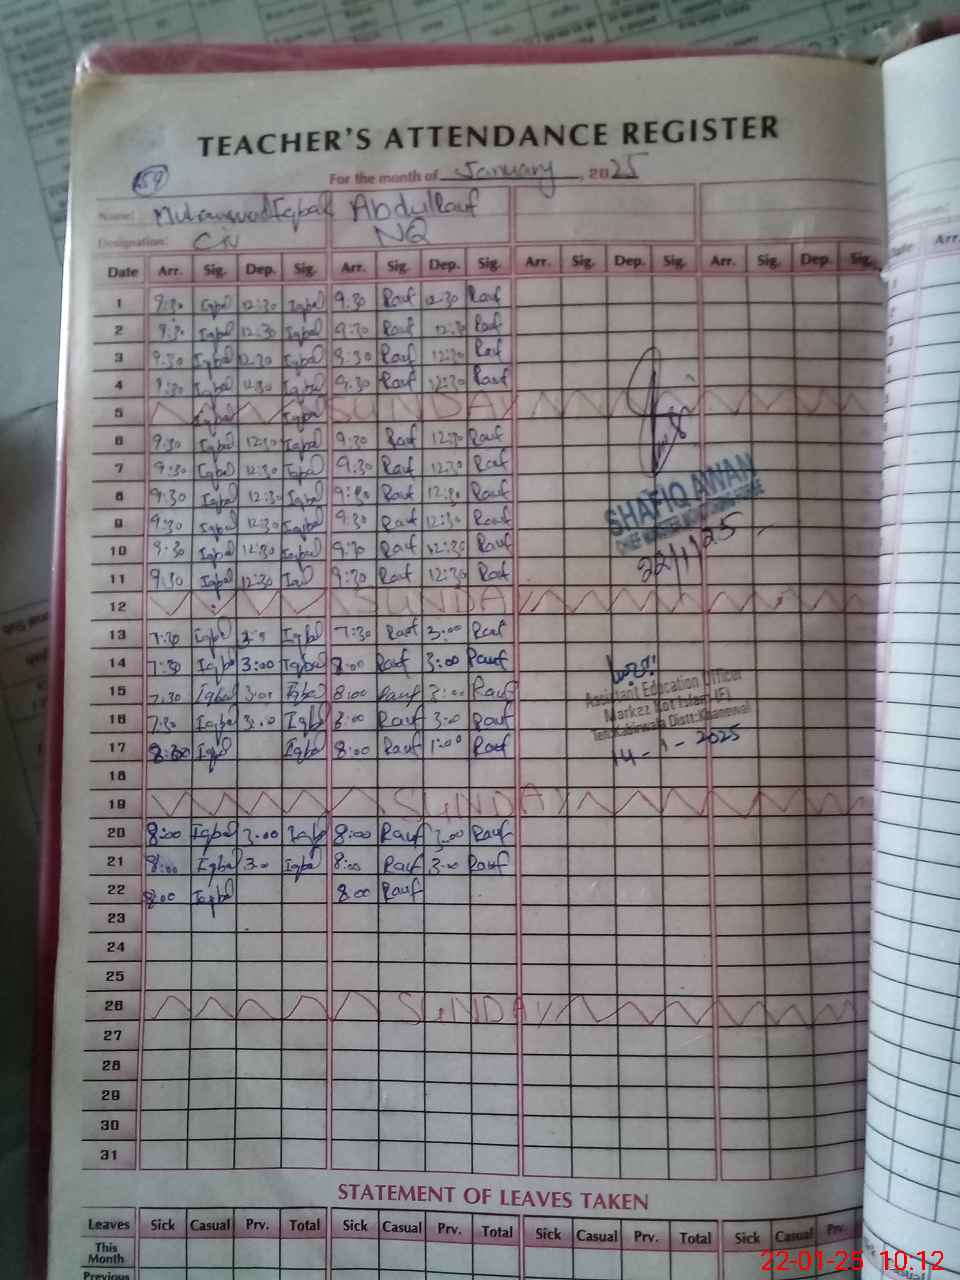 TEACHER'S ATTENDANCE REGISTER
59
For the month of January, 2025
Name: Muhammad Iqbal Abdul Rauf
Designation: NQ
Date Arr. Sig. Dep. Sig. Arr. Sig. Dep. Sig. Arr. Sig. Dep. Sig. Arr. Sig. Dep. Sig.
1 9:30 Iqbal 12:30 Iqbal 9.30 Rauf 12:30 Rauf
2 9:30 Iqbal 12:30 Iqbal 9:30 Rauf 12:30 Rauf
3 9:30 Iqbal 12:30 Iqbal 9:30 Rauf 12:30 Rauf
4 9:30 Iqbal 12:30 Iqbal 9.30 Rauf 12:30 Rauf
5 Iqbal Iqbal SUNDAY
6 9:30 Iqbal 12:30 Iqbal 9:30 Rauf 12:30 Rauf
7 9:30 Iqbal 12:30 Iqbal 9:30 Rauf 12:30 Rauf
8 9:30 Iqbal 12:30 Iqbal 9:30 Rauf 12:30 Rauf
9 9:30 Iqbal 12:30 Iqbal 9:30 Rauf 12:30 Rauf
10 9:30 Iqbal 12:30 Iqbal 9:30 Rauf 12:30 Rauf
11 9:30 Iqbal 12:30 Iqbal 9:30 Rauf 12:30 Rauf
12 SUNDAY
13 7:30 Iqbal Iqbal 7:30 Rauf 3:00 Rauf
14 7:30 Iqbal 3:00 Iqbal 8:00 Rauf 3:00 Rauf
15 7:30 Iqbal 3:00 Iqbal 8:00 Rauf 3:00 Rauf
16 7:30 Iqbal 3:00 Iqbal 8:00 Rauf 3:00 Rauf
17 Iqbal Iqbal 8:00 Rauf 1:00 Rauf
18
19 SUNDAY
20 8:00 Iqbal 3:00 Iqbal 8:00 Rauf 3:00 Rauf
21 8:00 Iqbal 3:00 Iqbal 8:00 Rauf 3:00 Rauf
22 8:00 Iqbal 8:00 Rauf
23
24
25
26 SUNDAY
27
28
29
30
31
SHAFIQ AWAN
CHIEF MINISTER
22/1/25
Assistant Education Officer
Markaz Kot Islam (F)
Teh: Kabirwala Distt: Khanewal
14-1-2025
STATEMENT OF LEAVES TAKEN
Leaves Sick Casual Prv. Total Sick Casual Prv. Total Sick Casual Prv. Total Sick Casual Prv.
This Month
Previous
22-01-25 10.12